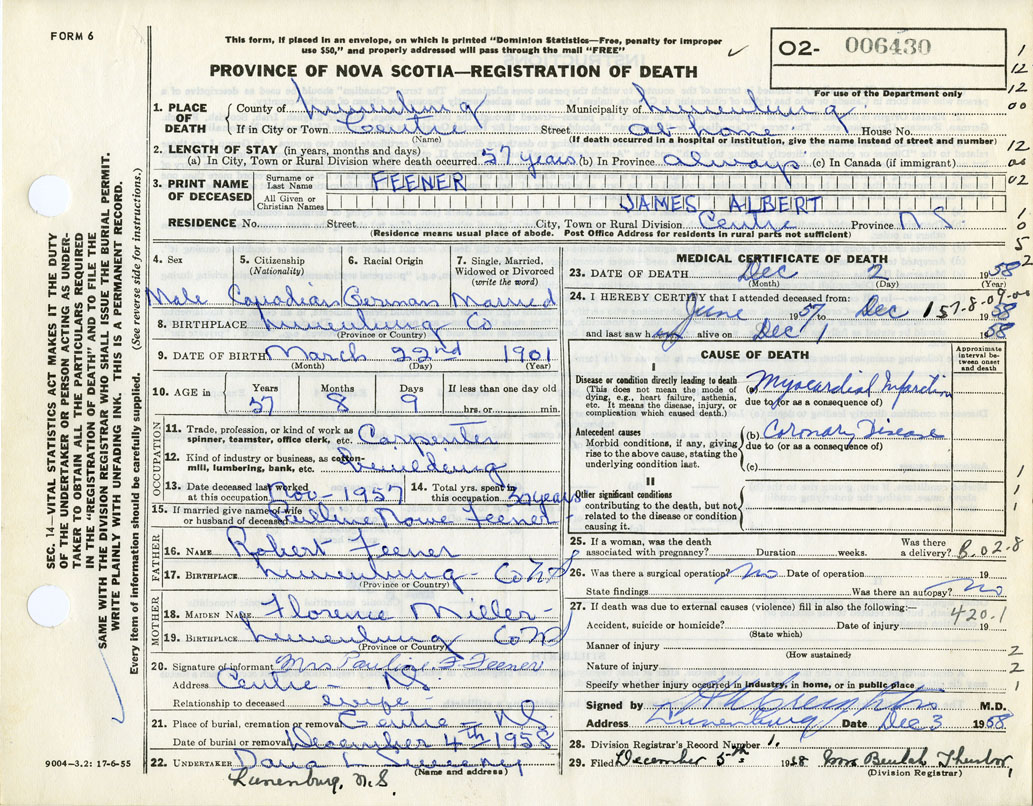 FORM 6
This form, if placed in an envelope, on which is printed "Dominion Statistics—Free, penalty for improper
use $50," and properly addressed will pass through the mail "FREE"
02- 006430
For use of the Department only
PROVINCE OF NOVA SCOTIA—REGISTRATION OF DEATH
1. PLACE OF DEATH
County of Lunenburg Municipality of Lunenburg
If in City or Town Centre Street at home House No.
(Name) (If death occurred in a hospital or institution, give the name instead of street and number)
2. LENGTH OF STAY (in years, months and days)
(a) In City, Town or Rural Division where death occurred 57 years (b) In Province always (c) In Canada (if immigrant)
3. PRINT NAME OF DECEASED
Surname or Last Name FEENER
All Given or Christian Names JAMES ALBERT
RESIDENCE No. Street City, Town or Rural Division Centre Province N.S.
(Residence means usual place of abode. Post Office Address for residents in rural parts not sufficient)
4. Sex Male
5. Citizenship (Nationality) Canadian
6. Racial Origin German
7. Single, Married, Widowed or Divorced (write the word) Married
8. BIRTHPLACE Lunenburg Co
(Province or Country)
9. DATE OF BIRTH March 22nd 1901
(Month) (Day) (Year)
10. AGE in Years 57 Months 8 Days 9 If less than one day old hrs. or min.
OCCUPATION
11. Trade, profession, or kind of work as spinner, teamster, office clerk, etc. Carpenter
12. Kind of industry or business, as cotton-mill, lumbering, bank, etc. building
13. Date deceased last worked at this occupation Nov - 1957
14. Total yrs. spent in this occupation 30 years
15. If married give name of wife or husband of deceased Pauline Rowe Feener
FATHER
16. NAME Robert Feener
17. BIRTHPLACE Lunenburg - Co N.S
(Province or Country)
MOTHER
18. MAIDEN NAME Florence Miller-
19. BIRTHPLACE Lunenburg Co NS
(Province or Country)
20. Signature of informant Mrs Pauline F Feener
Address Centre - NS
Relationship to deceased wife
21. Place of burial, cremation or removal Centre - NS
Date of burial or removal December 4th 1958
22. UNDERTAKER Dana L. Sweeny
(Name and address)
Lunenburg, N.S.
MEDICAL CERTIFICATE OF DEATH
23. DATE OF DEATH Dec 2 1958
(Month) (Day) (Year)
24. I HEREBY CERTIFY that I attended deceased from:
June 1957 to Dec 1 1958
57-8-09-00
and last saw h alive on Dec 1 1958
CAUSE OF DEATH
Approximate interval between onset and death
I
Disease or condition directly leading to death
(This does not mean the mode of dying, e.g., heart failure, asthenia, etc. It means the disease, injury, or complication which caused death.)
(a) Myocardial Infarction
due to (or as a consequence of)
Antecedent causes
Morbid conditions, if any, giving rise to the above cause, stating the underlying condition last.
(b) Coronary Disease
due to (or as a consequence of)
(c)
II
Other significant conditions
contributing to the death, but not related to the disease or condition causing it.
25. If a woman, was the death associated with pregnancy? Duration weeks. Was there a delivery? B.02-8
26. Was there a surgical operation? No Date of operation 19
State findings Was there an autopsy? no
27. If death was due to external causes (violence) fill in also the following:—
420.1
Accident, suicide or homicide? Date of injury 19
(State which)
Manner of injury
(How sustained)
Nature of injury
Specify whether injury occurred in industry, in home, or in public place
Signed by H A Creighton M.D.
Address Lunenburg Date Dec 3 1958
28. Division Registrar's Record Number 1.
29. Filed December 5th 1958 Mrs Beulah
(Division Registrar)
SEC. 14—VITAL STATISTICS ACT MAKES IT THE DUTY
OF THE UNDERTAKER OR PERSON ACTING AS UNDER-
TAKER TO OBTAIN ALL THE PARTICULARS REQUIRED
IN THE "REGISTRATION OF DEATH" AND TO FILE THE
SAME WITH THE DIVISION REGISTRAR WHO SHALL ISSUE THE BURIAL PERMIT.
WRITE PLAINLY WITH UNFADING INK. THIS IS A PERMANENT RECORD.
Every item of information should be carefully supplied. (See reverse side for instructions.)
9004—3.2: 17-6-55
1
12
12
00
12
00
02
1
0
5
2
1
1
1
2
2
1
1